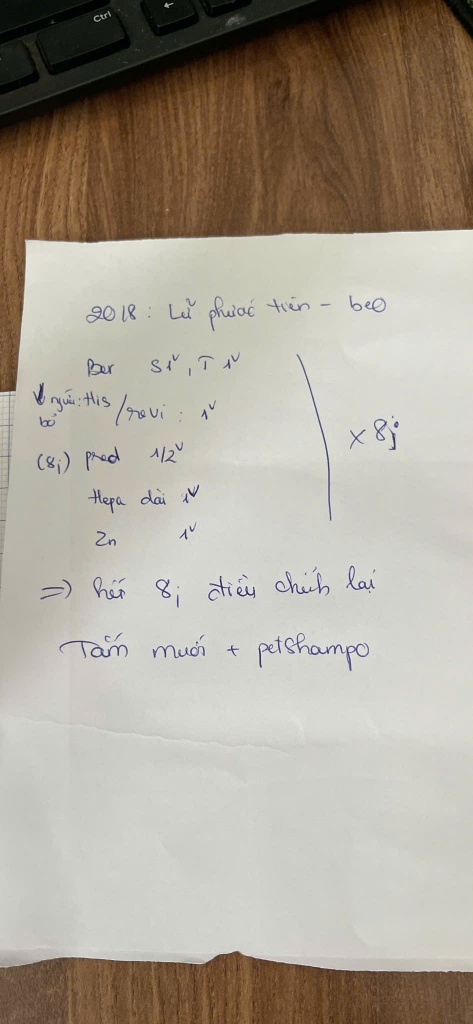 Ctrl
2018: Lữ phước tiến - beo
Ber S1v, T 1v
ngứa: His /revi: 1v
bỏ
(8j) pred 1/2v
Hepa dài 1v
Zn 1v
x 8j
=> hết 8j điều chỉnh lại
Tắm muối + petShampo